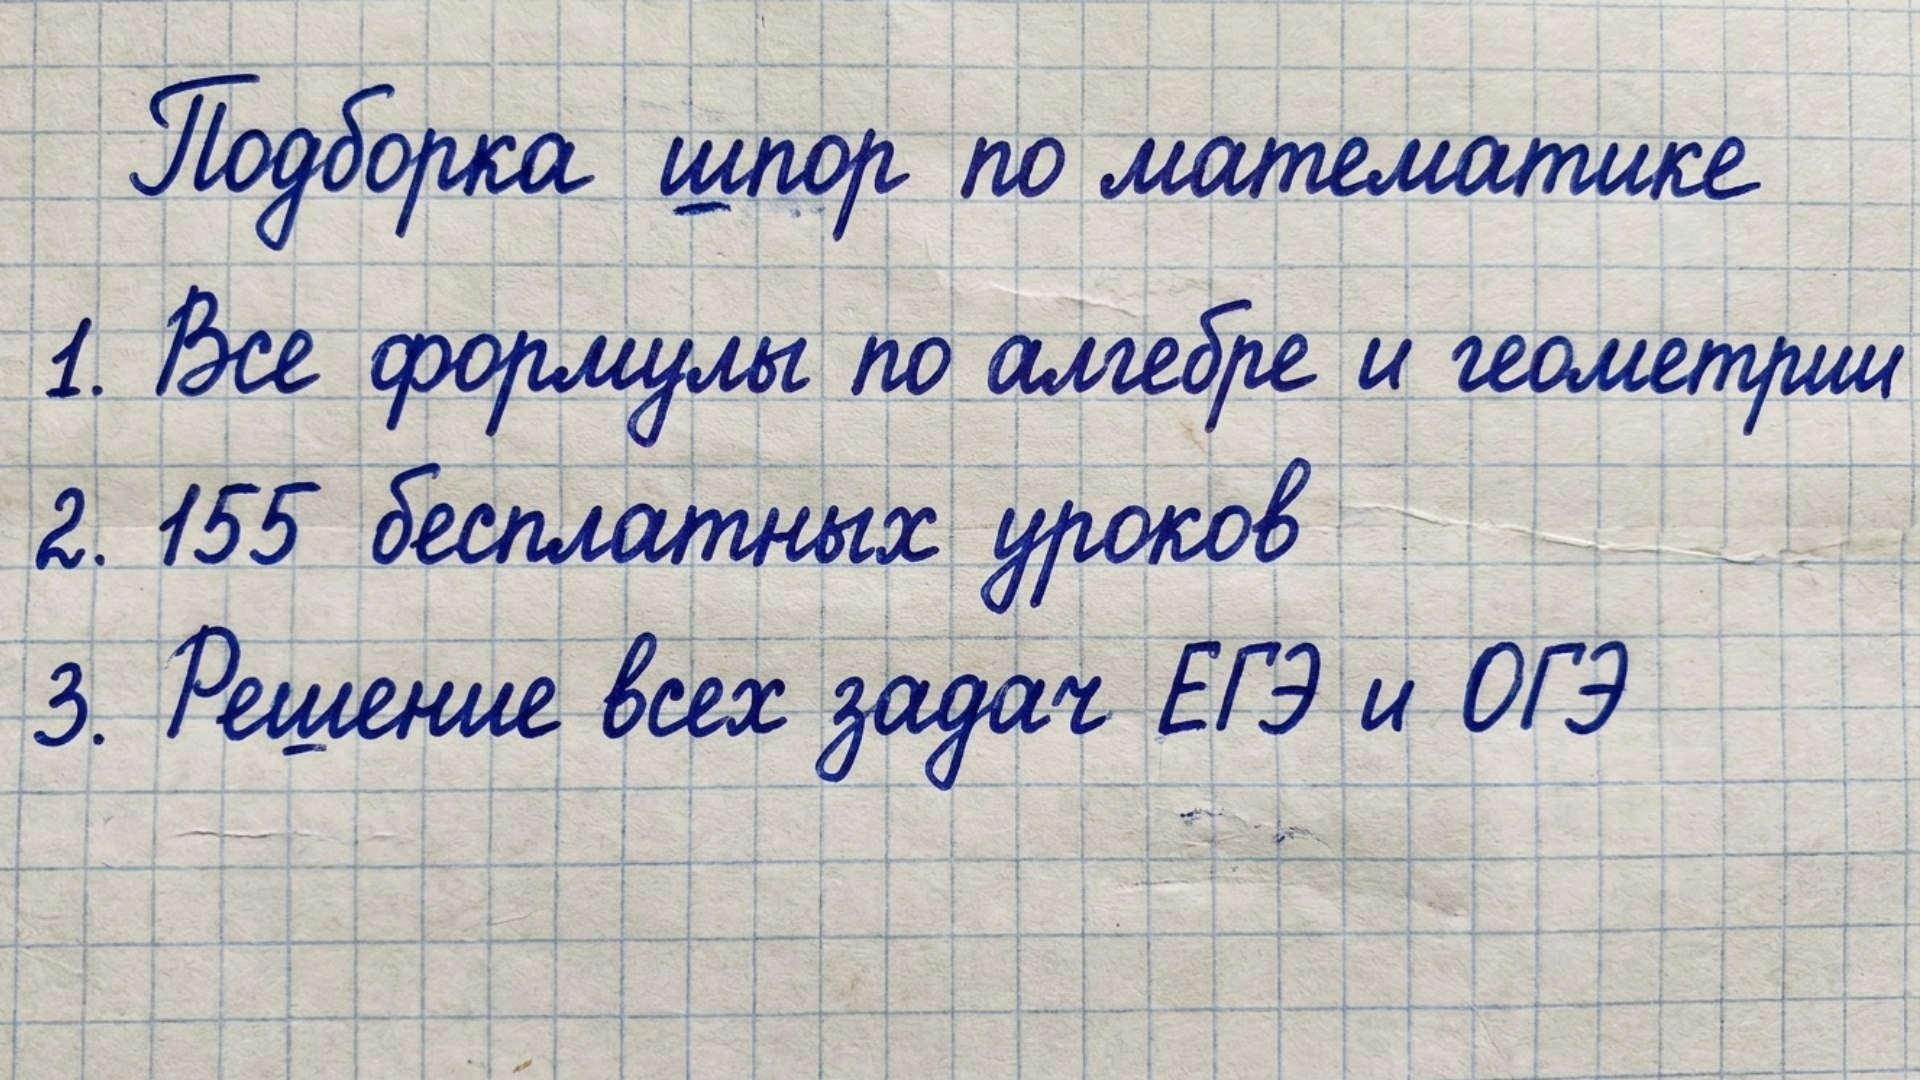 Подборка шпор по математике
1. Все формулы по алгебре и геометрии
2. 155 бесплатных уроков
3. Решение всех задач ЕГЭ и ОГЭ